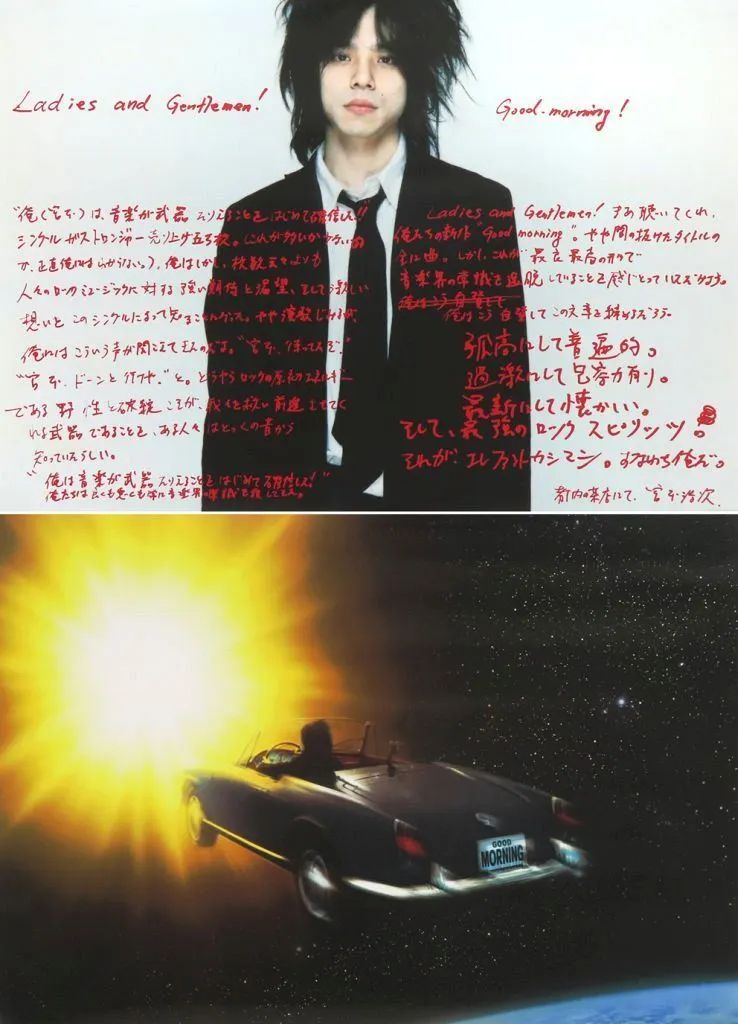 Ladies and Gentlemen!
Good-morning!
"俺(宮本)は、音楽が武器たりえることをはじめて確信した!!
シングル ガストロンジャー 売り上げ五万枚。これが多いか少ないの
か、正直俺にはわからない。俺はしかし、枚数云々よりも
人々のロックミュージックに対する強い期待と渇望、そして激しい
想いを このシングルによって知ることになった。やや
俺にはこういう声が聞こえてきたのだよ。"宮本、待ってたぞ。"
"宮本、ドーンと行けや。"と。どうやらロックの原初エネルギー
である 野性と破綻 こそが、我々を救い前進させてく
れる武器であることを、ある人々はとっくの昔から
知っていたらしい。
"俺は音楽が武器たりえることをはじめて確信した!"
俺たちは良くも悪くも常に音楽界の常識を
Ladies and Gentlemen! さあ 聴いてくれ、
俺たちの新作 "Good morning"。やや間の抜けたタイトルの
全曲。しかし、これが 最高のもので
音楽界の常識を逸脱していることを感じとっていただけよう。
俺はこう自賛してこの文章を締めるだろう。
孤高にして普遍的。
過激にして包容力有り。
最新にして懐かしい。
そして、最強のロック スピリッツ。
それが、エレファントカシマシ。すなわち俺だ。
都内の茶店にて、宮本浩次
GOOD
MORNING